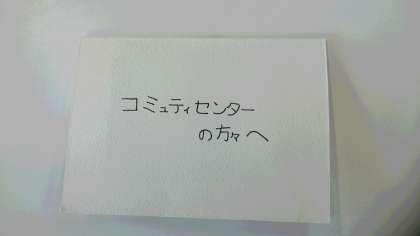 コミュティセンター
の方々へ